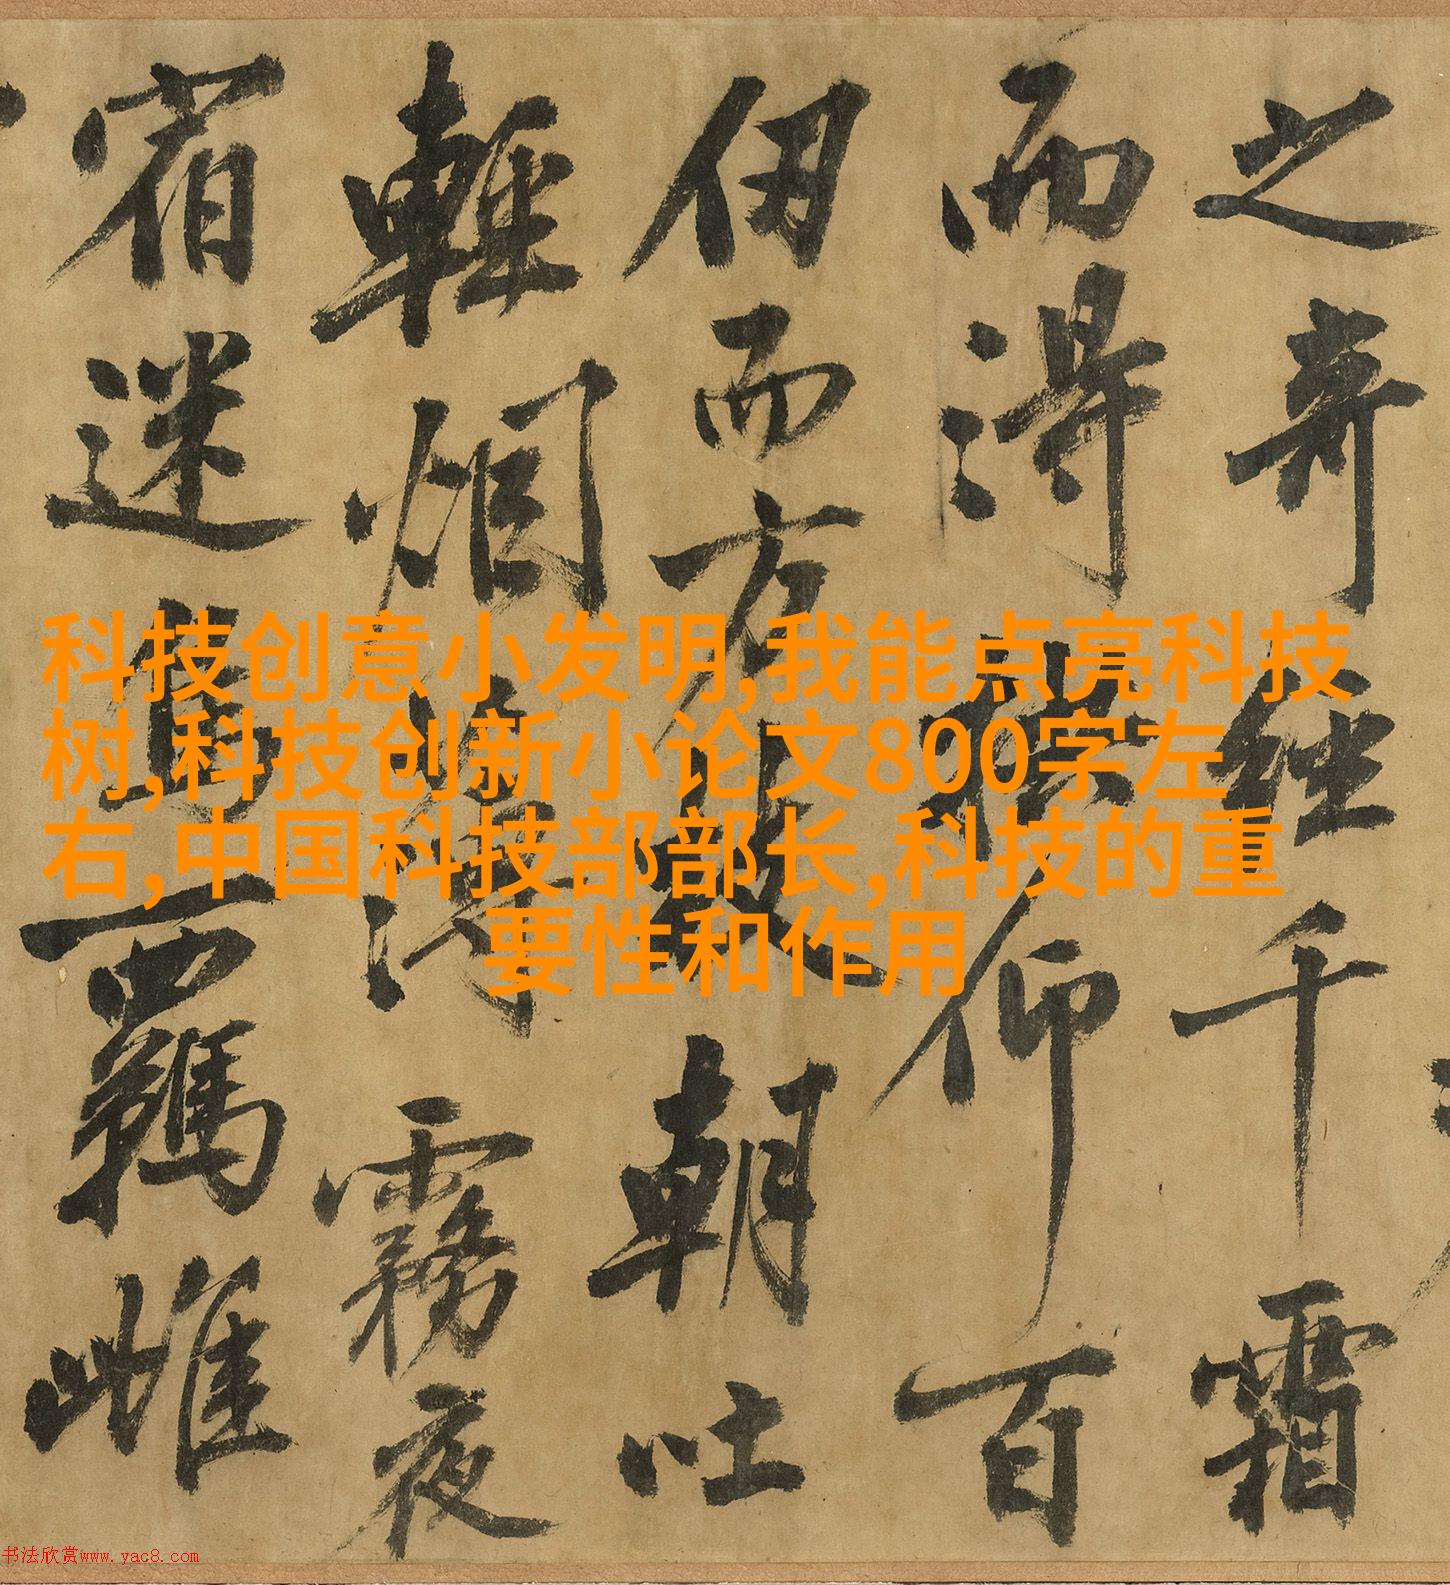 之奇經千霜
而得拱仰百
伊而方朝吐
輕烟霧夜
宿迷鳥羈雌
科技创意小发明,我能点亮科技
树,科技创新小论文800字左
右,中国科技部部长,科技的重
要性和作用
书法欣赏www.yac8.com